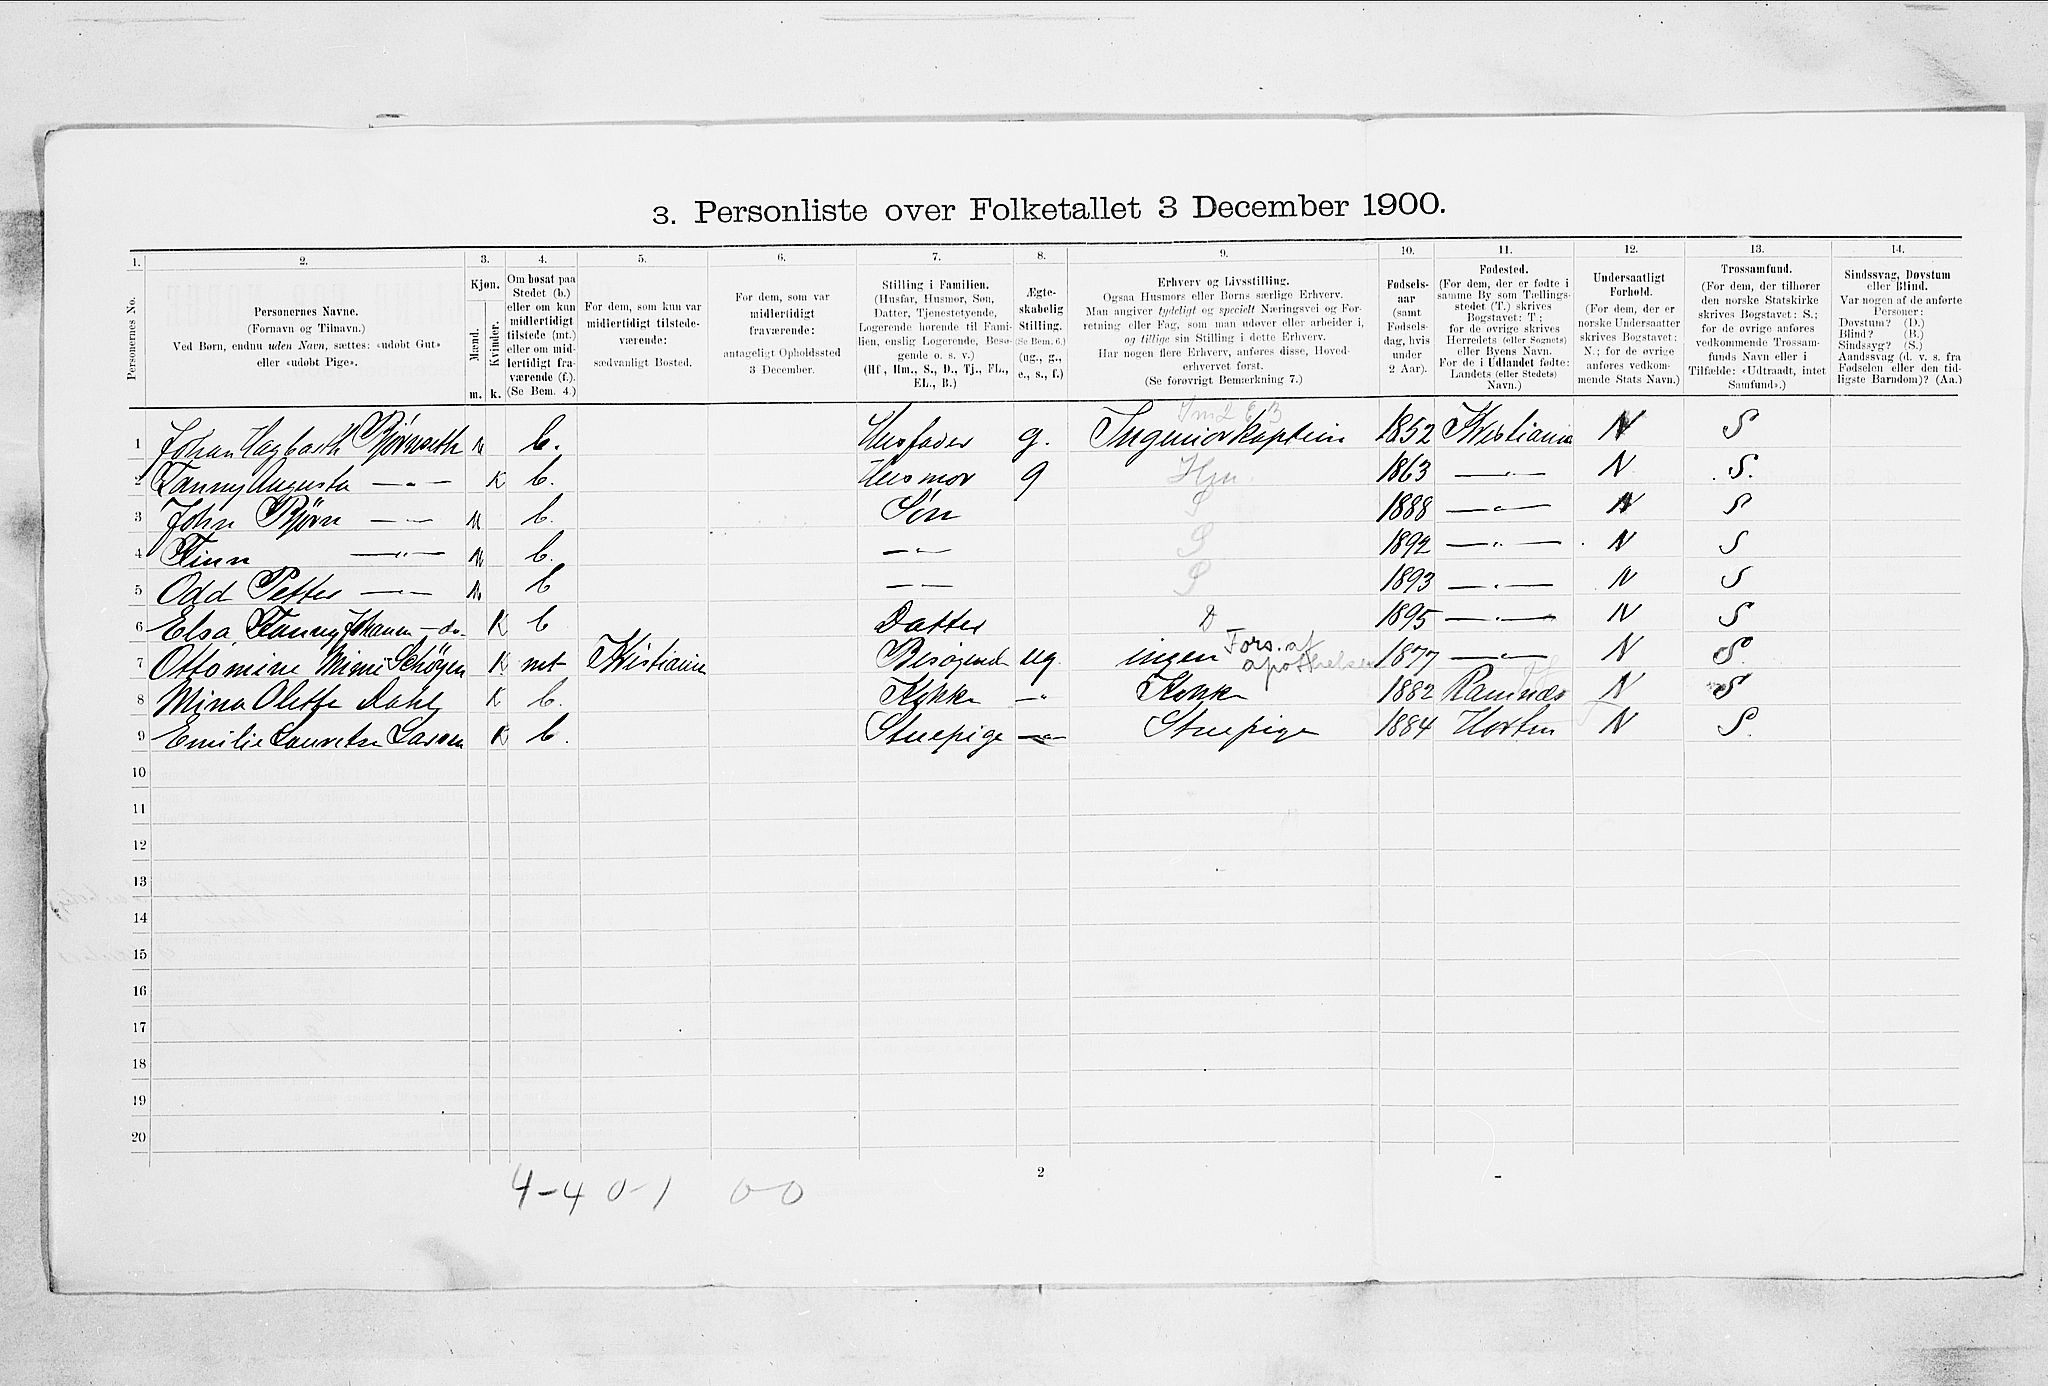 3. Personliste over Folketallet 3 December 1900.
1. 2. 3. 4. 5. 6. 7. 8. 9. 10. 11. 12. 13. 14.
Personernes No.
Personernes Navne.
(Fornavn og Tilnavn.)
Ved Børn, endnu uden Navn, sættes: «udøbt Gut»
eller «udøbt Pige».
Kjøn.
Mænd.
Kvinder.
m. k.
Om bosat paa
Stedet (b.)
eller om kun
midlertidigt
tilstede (mt.)
eller om mid-
lertidigt fra-
værende (f.).
(Se Bem. 4.)
For dem, som kun var
midlertidigt tilstede-
værende:
sædvanligt Bosted.
For dem, som var
midlertidigt
fraværende:
antageligt Opholdssted
3 December.
Stilling i Familien.
(Husfar, Husmor, Søn,
Datter, Tjenestetyende,
Logerende hørende til Fami-
lien, enslig Logerende, Besø-
gende o. s. v.)
(Hf, Hm., S., D., Tj., FL.,
EL., B.)
Ægte-
skabelig
Stilling.
(Se Bem. 6.)
(ug., g.,
e., s., f.)
Erhverv og Livsstilling.
Ogsaa Husmors eller Børns særlige Erhverv.
Man angiver tydeligt og specielt Næringsvei og For-
retning eller Fag, som man udøver eller arbeider i,
og tillige sin Stilling i dette Erhverv.
Har nogen flere Erhverv, anføres disse, Hoved-
erhvervet først.
(Se forøvrigt Bemærkning 7.)
Fødsels-
aar
(samt
Fødsels-
dag, hvis
under
2 Aar).
Fødested.
(For dem, der er fødte i
samme By som Tællings-
stedet (T.) skrives
Bogstavet: T.;
for de øvrige skrives
Herredets (eller Sognets)
eller Byens Navn.
For de i Udlandet fødte:
Landets (eller Stedets)
Navn.)
Undersaatligt
Forhold.
(For dem, der er
norske Undersaatter
skrives Bogstavet:
N.; for de øvrige
anføres vedkom-
mende Stats Navn.)
Trossamfund.
(For dem, der tilhører
den norske Statskirke
skrives Bogstavet: S.;
for de øvrige anføres
vedkommende Trossam-
funds Navn eller i
Tilfælde: «Udtraadt, intet
Samfund».)
Sindssvag, Døvstum
eller Blind.
Var nogen af de anførte
Personer:
Døvstum? (D.)
Blind? (B.)
Sindssyg? (S.)
Aandssvag (d. v. s. fra
Fødselen eller den tid-
ligste Barndom)? (Aa.)
1 Johan Hagbarth Bjørnseth m b. Husfader g. Ingeniørkaptein 1852 Kristiania N S
2 Fanny Augusta —„— K b. Husmor g Hm 1863 —„— N S.
3 John Bjørn —„— m b. Søn S 1888 —„— N S
4 Finn —„— m b. —„— S 1892 —„— N S
5 Odd Petter —„— m b —„— S 1893 —„— N S
6 Elsa Fanny Johanne —do— K b Datter D 1895 —„— N S
7 Ottomine Mimi Schøyen K mt Kristiania Besøgende ug. ingen Fors. af apothekser 1877 —„— N S.
8 Mina Olette Dahl K b. Kokke —„ Kokke 1882 Ramnæs N S
9 Emilie Lauretse Larsen K b. Stuepige —„— Stuepige 1884 Horten N S.
10
11
12
13
14
15
16
17
18
19
20
2
4-4 0-1 0-0